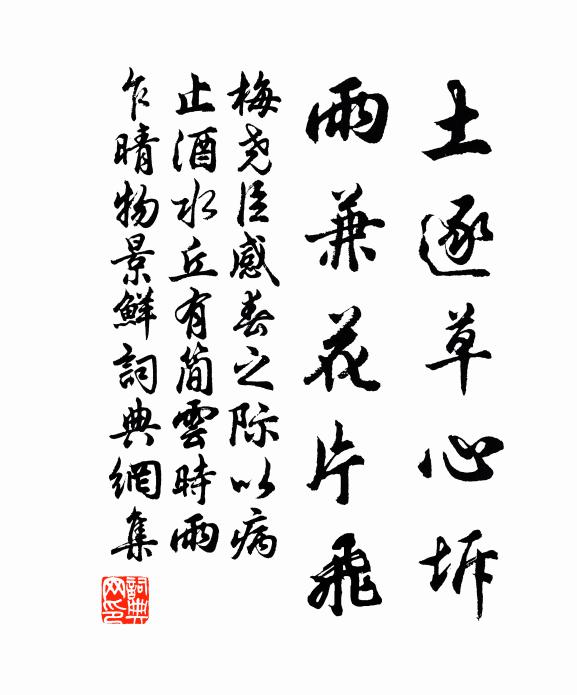 土逐草心坼
雨兼花片飛
梅堯臣感春之际以病
止酒水丘有簡雲時雨
乍晴物景鮮詞典網集
詞典网印